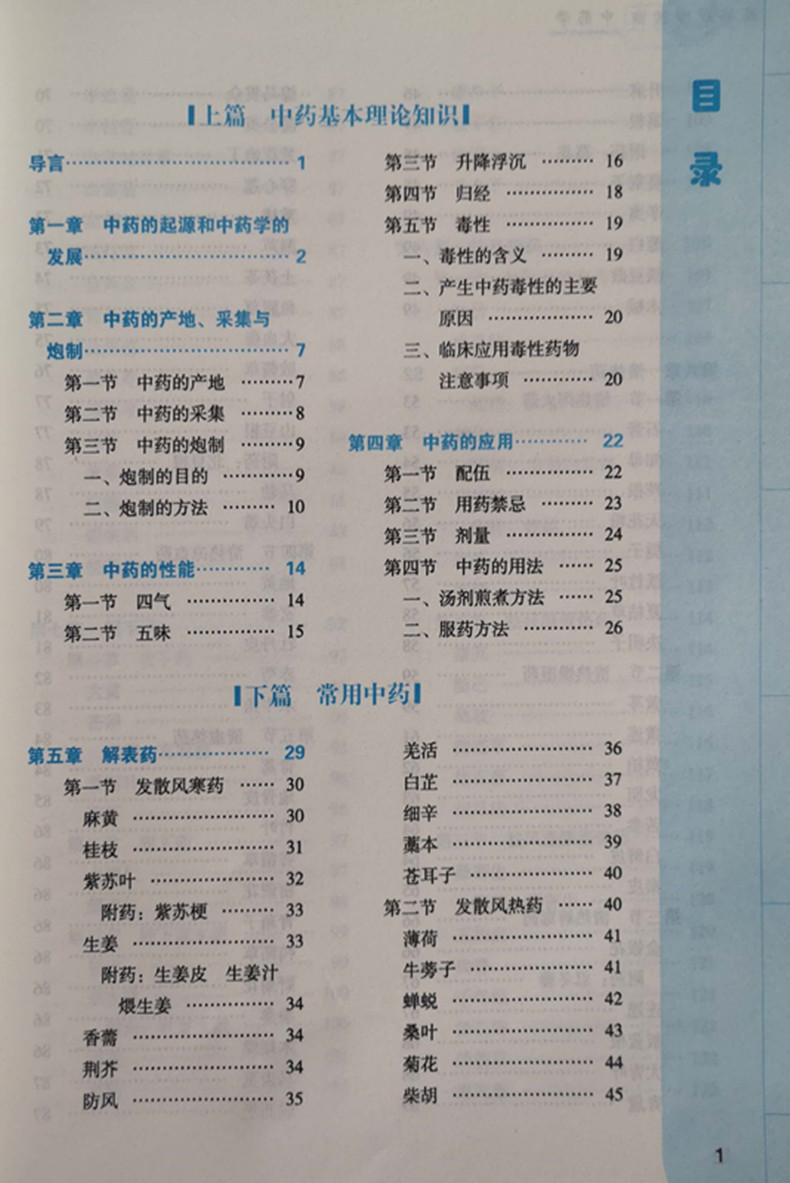 目录
上篇 中药基本理论知识
导言 1
第一章 中药的起源和中药学的
发展 2
第二章 中药的产地、采集与
炮制 7
第一节 中药的产地 7
第二节 中药的采集 8
第三节 中药的炮制 9
一、炮制的目的 9
二、炮制的方法 10
第三章 中药的性能 14
第一节 四气 14
第二节 五味 15
第三节 升降浮沉 16
第四节 归经 18
第五节 毒性 19
一、毒性的含义 19
二、产生中药毒性的主要
原因 20
三、临床应用毒性药物
注意事项 20
第四章 中药的应用 22
第一节 配伍 22
第二节 用药禁忌 23
第三节 剂量 24
第四节 中药的用法 25
一、汤剂煎煮方法 25
二、服药方法 26
下篇 常用中药
第五章 解表药 29
第一节 发散风寒药 30
麻黄 30
桂枝 31
紫苏叶 32
附药：紫苏梗 33
生姜 33
附药：生姜皮 生姜汁
煨生姜 34
香薷 34
荆芥 34
防风 35
羌活 36
白芷 37
细辛 38
藁本 39
苍耳子 40
第二节 发散风热药 40
薄荷 41
牛蒡子 41
蝉蜕 42
桑叶 43
菊花 44
柴胡 45
1